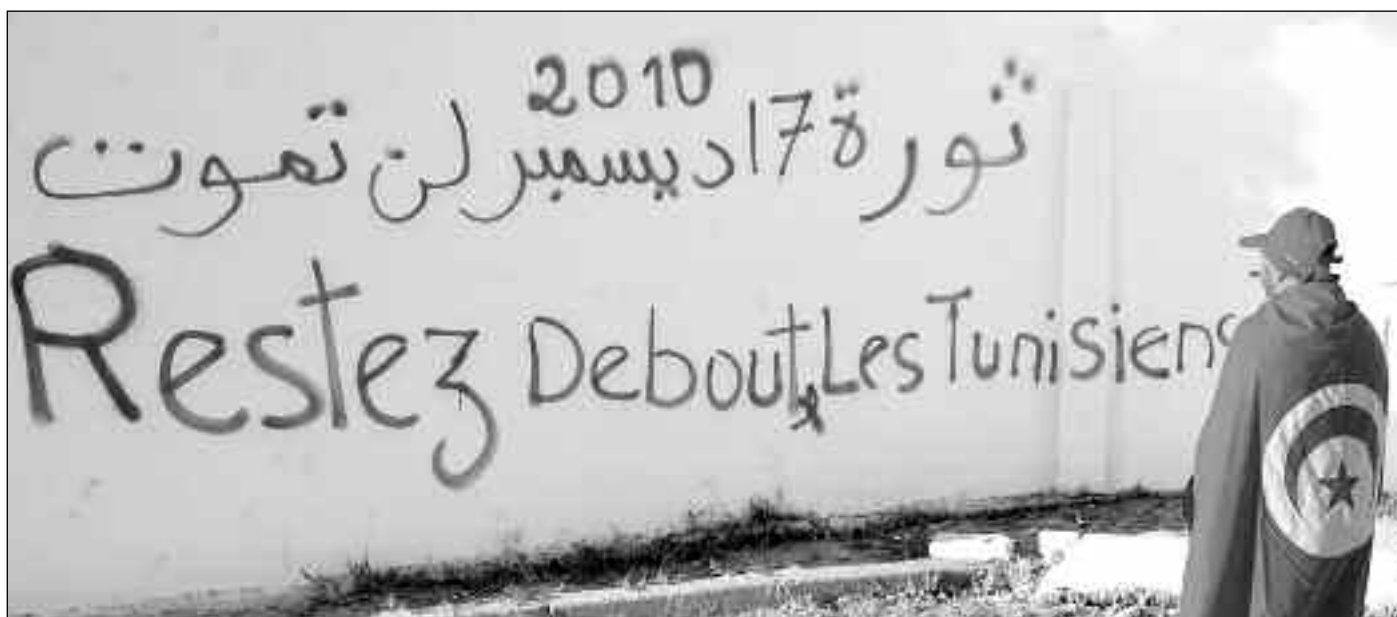 2010
ثورة 17 ديسمبر لن تموت
Restez Debout, Les Tunisiens